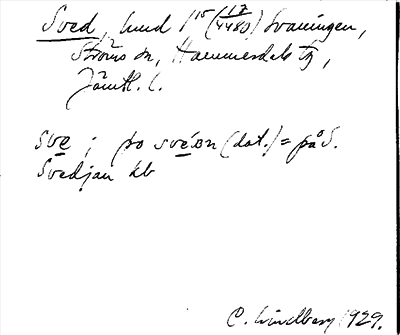 Sved, hmd 1/15 (17/4480) Svaningen,
Ströms sn, Hammerdals tg,
Jämtl. l.
sve ; po svéɔn (dat.) = på S.
Svedjan kb
C. Lindberg 1929.